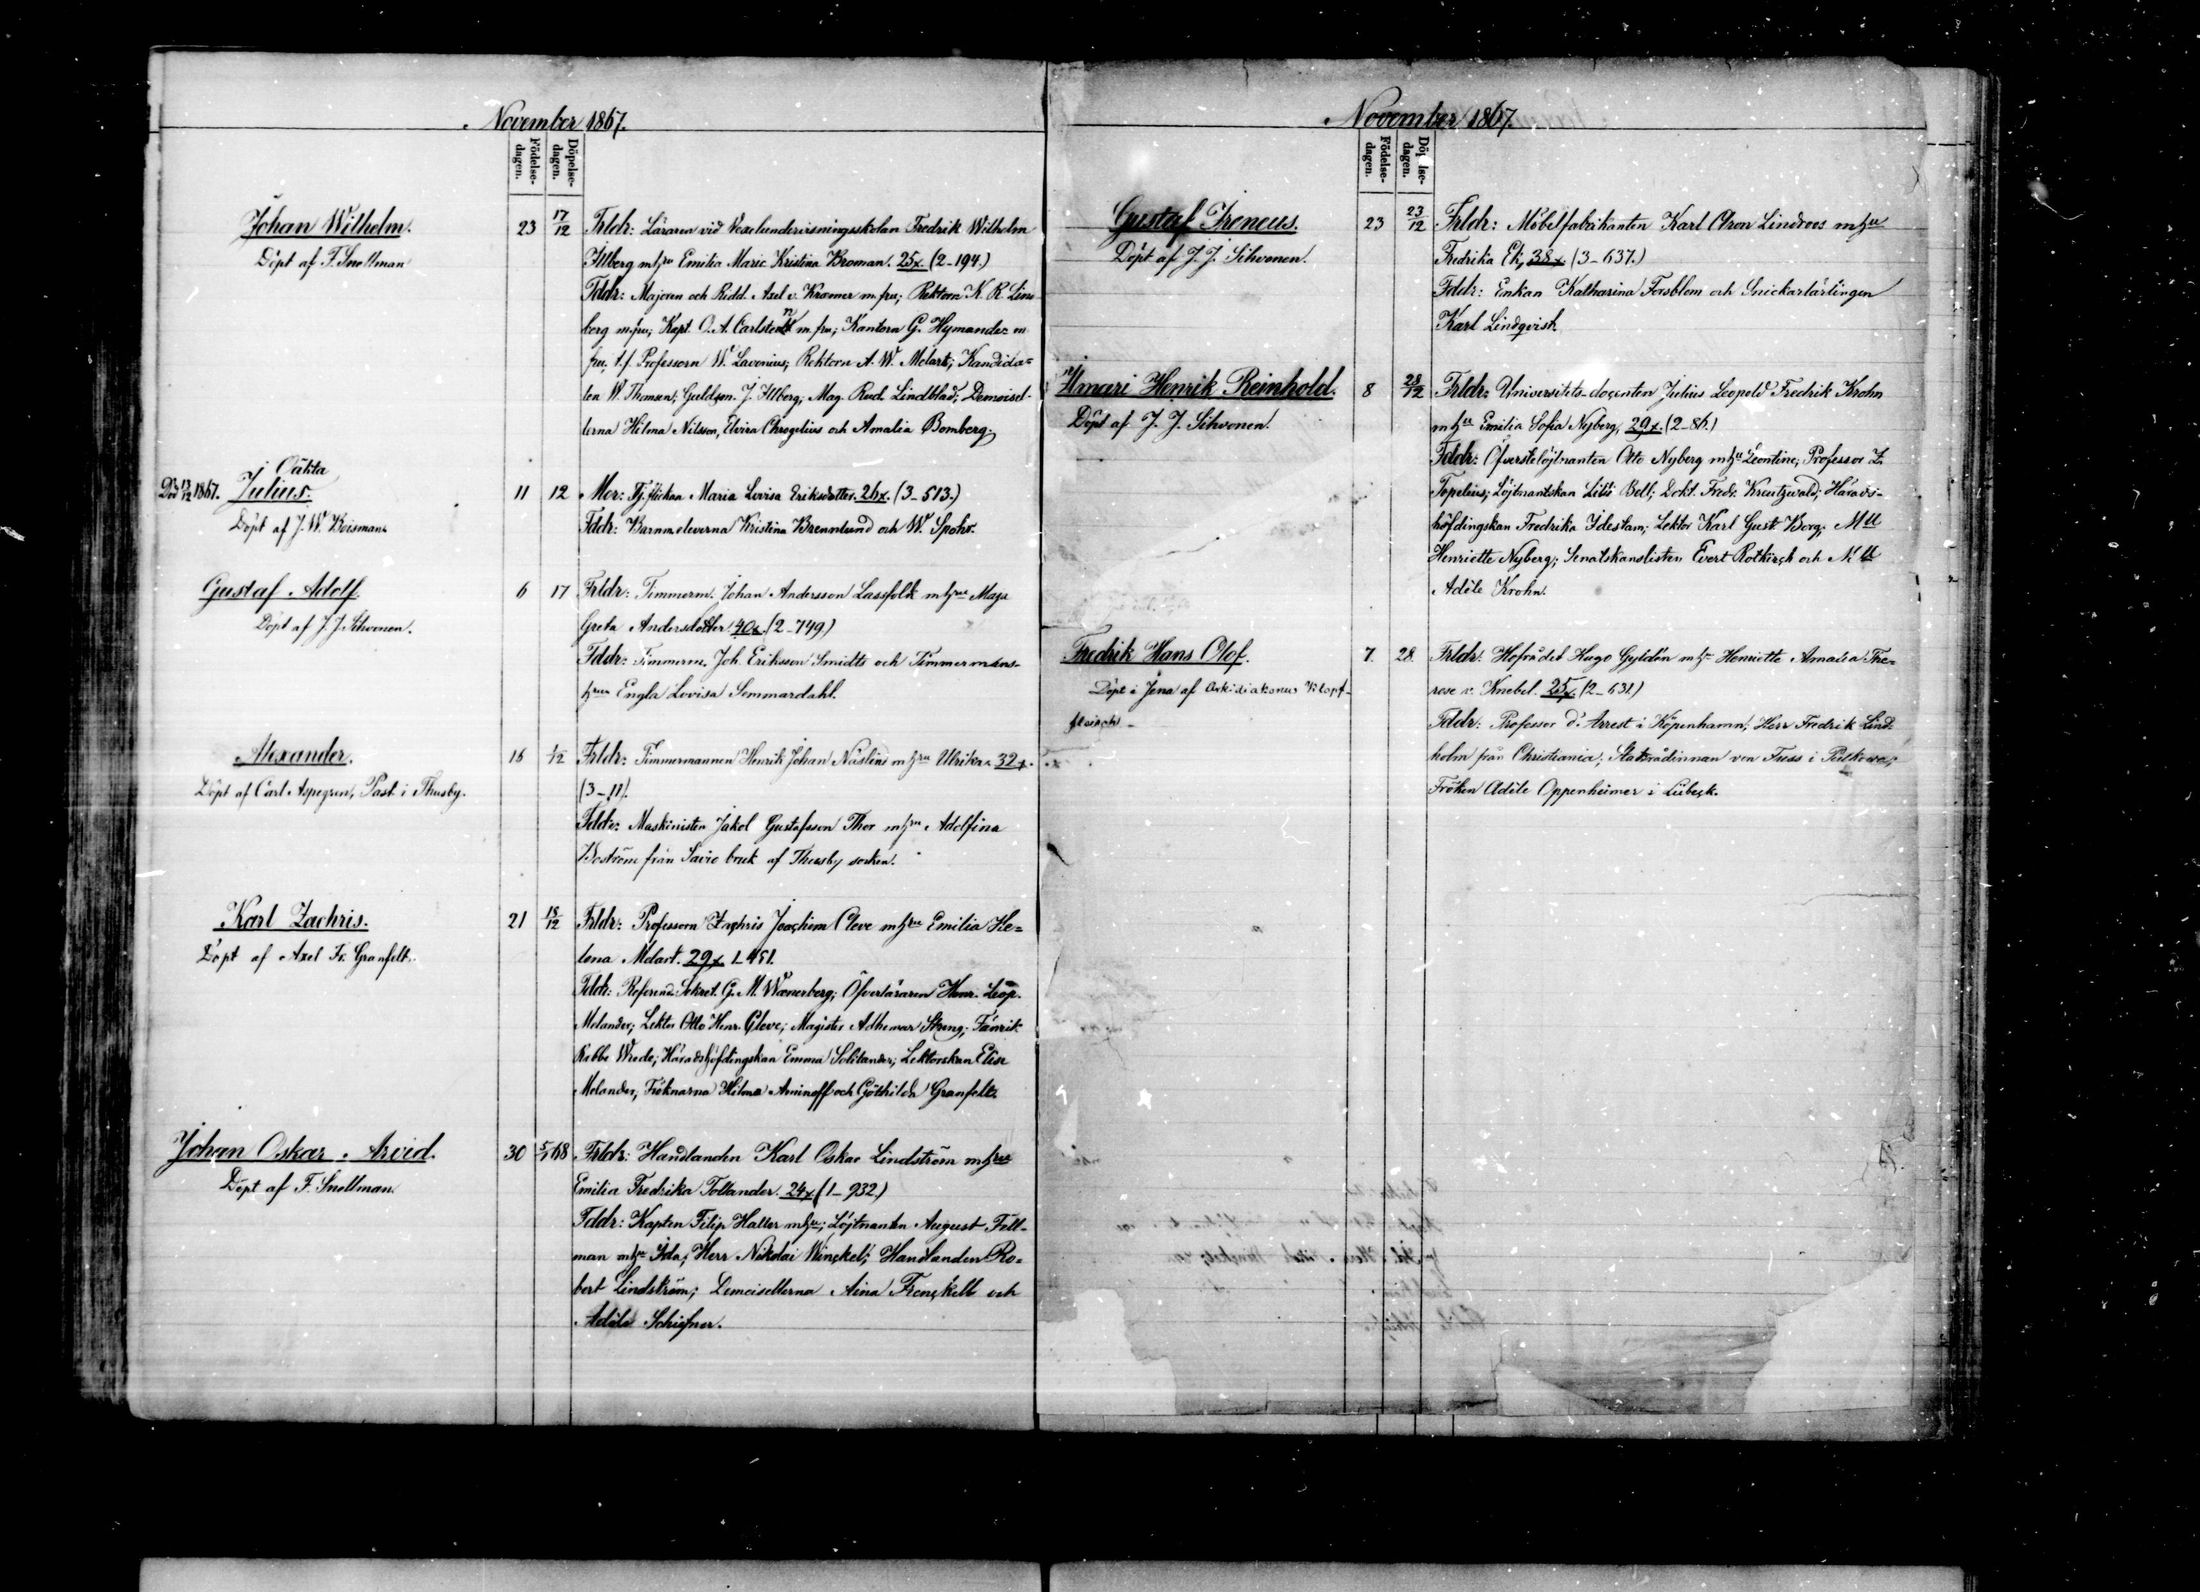 November 1867.
Födelse-dagen.
Döpelse-dagen.
Johan Wilhelm.
Döpt af F. Snellman
23 17/12
Frldr: Läraren vid Vexelundervisningsskolan Fredrik Wilhelm
Illberg m hru Emilia Marie Kristina Broman. 25 x. (2-194.)
Fddr: Majoren och Ridd. Axel v. Kræmer m fru; Rektorn K. R. Lind
berg m fru; Kapt. O. A. Carlstedt m. fru; Kantorn G. Hymander m
fru, t.f. Professorn W. Lavonius; Rektorn A. W. Melart; Kandida=
ten W. Thomsen; Guldsm. J. Illberg; Mag. Rud. Lindblad; Demoisel-
lerna Hilma Nilsson, Elvira Chrogelius och Amalia Bomberg.
Död 13/12 1867.
Oäkta
Julius.
Döpt af J. W. Roisman.
11 12
Mor: Tj. flickan Maria Lovisa Eriksdotter. 26 x. (3-513.)
Fddr: Barnm. eleverna Kristina Brennlund och W. Spohr.
Gustaf Adolf.
Döpt af J. J. Sihvonen.
6 17
Frldr: Timmerm. Johan Andersson Lassfolk m hru Maja
Greta Andersdotter 40 x. (2-749)
Fddr: Timmerm. Joh. Eriksson Smidts och Timmermans-
hrun Engla Lovisa Sommardahl.
Alexander.
Döpt af Carl Aspegren, Past. i Thusby.
16 1/12
Frldr: Timmermannen Henrik Johan Näslind m hru Ulrika 32 x.
(3-11).
Fddr: Maskinisten Jakob Gustafsson Thor m hru Adolfina
Boström från Savio bruk af Thusby socken.
Karl Zachris.
Döpt af Axel Fr. Granfelt.
21 18/12
Frldr: Professorn Zachris Joachim Cleve m hru Emilia He=
lena Melart. 29 x 1-451.
Fddr: Referend. Sekret. G. M. Wænerberg; Öfverläraren Henr. Leop.
Melander; Lektor Otto Henr. Cleve; Magister Adhemar Streng; Fänrik
Rabbe Wrede; Häradshöfdingskan Emma Solitander; Lektorskan Elise
Melander, Fröknarna Hilma Aminoff och Göthilda Granfelt.
Johan Oskar Arvid.
Döpt af F. Snellman.
30 5/1 68
Frldr: Handlanden Karl Oskar Lindström m hru
Emilia Fredrika Tollander. 24 x (1-932)
Fddr: Kapten Filip Haller m hru; Löjtnanten August Fell-
man m hru Ida; Herr Nikolai Winckel; Handlanden Ro-
bert Lindström; Demoisellerna Aina Frenckell och
Adèle Schiefner.
November 1867.
Födelse-dagen.
Döpelse-dagen.
Gustaf Ireneus.
Döpt af J. J. Sihvonen.
23 23/12
Frldr: Möbelfabrikanten Karl Aron Lindroos m hru
Fredrika Ek, 38 x (3-637.)
Fddr: Enkan Katharina Forsblom och Snickarlärlingen
Karl Lindqvist.
Ilmari Henrik Reinhold.
Döpt af J. J. Sihvonen.
8 28/12
Frldr: Universitets-docenten Julius Leopold Fredrik Krohn
m hru Emilia Sofia Nyberg, 29 x. (2-86.)
Fddr: Öfverstelöjtnanten Otto Nyberg m hru Leontine; Professor Z.
Topelius; Löjtnantskan Bell; Dokt. Fredr. Kreutzwald; Härads-
höfdingskan Fredrika Idestam; Lektor Karl Gust. Borg; Mll
Henriette Nyberg; Senatskanslisten Evert Rotkirch och Mll
Adèle Krohn.
Fredrik Hans Olof.
Döpt i Jena af Arkidiakonus Klopf-
fleisch -
7. 28.
Frldr: Hofrådet Hugo Gyldén m hr Henriette Amalia The-
rese v. Knebel. 25 x. (2-631)
Fddr: Professor d'Arrest i Köpenhamn; Herr Fredrik Lind-
holm från Christiania; Statsrådinnan von Fuss i Pulkova;
Fröken Adèle Oppenheimer i Lübeck.